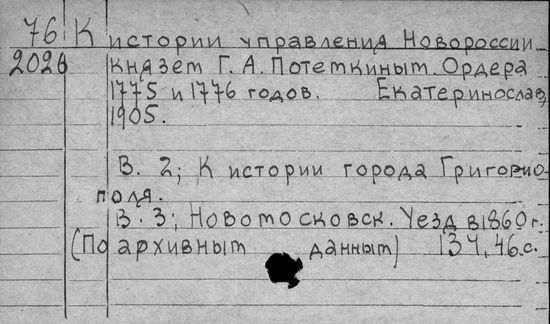 76 К истории управления Новороссии
2026 князем Г. А. Потемкиным. Ордера
1775 и 1776 годов. Екатеринослав,
1905.
В. 2; К истории города Григорио-
поля.
В. 3; Новомосковск. Уезд в 1860 г.
(По архивным данным) 134, 46с.